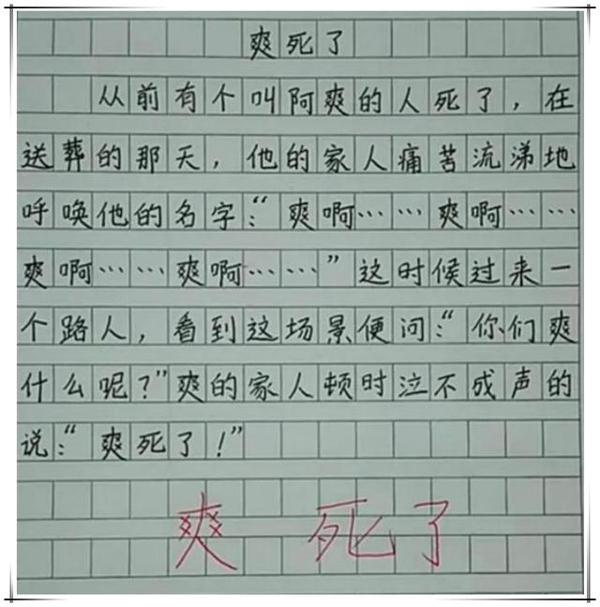 爽死了
从前有个叫阿爽的人死了，在
送葬的那天，他的家人痛苦流涕地
呼唤他的名字：“爽啊……爽啊……
爽啊……爽啊……”这时候过来一
个路人，看到这场景便问：“你们爽
什么呢？”爽的家人顿时泣不成声的
说：“爽死了！”
爽 死了